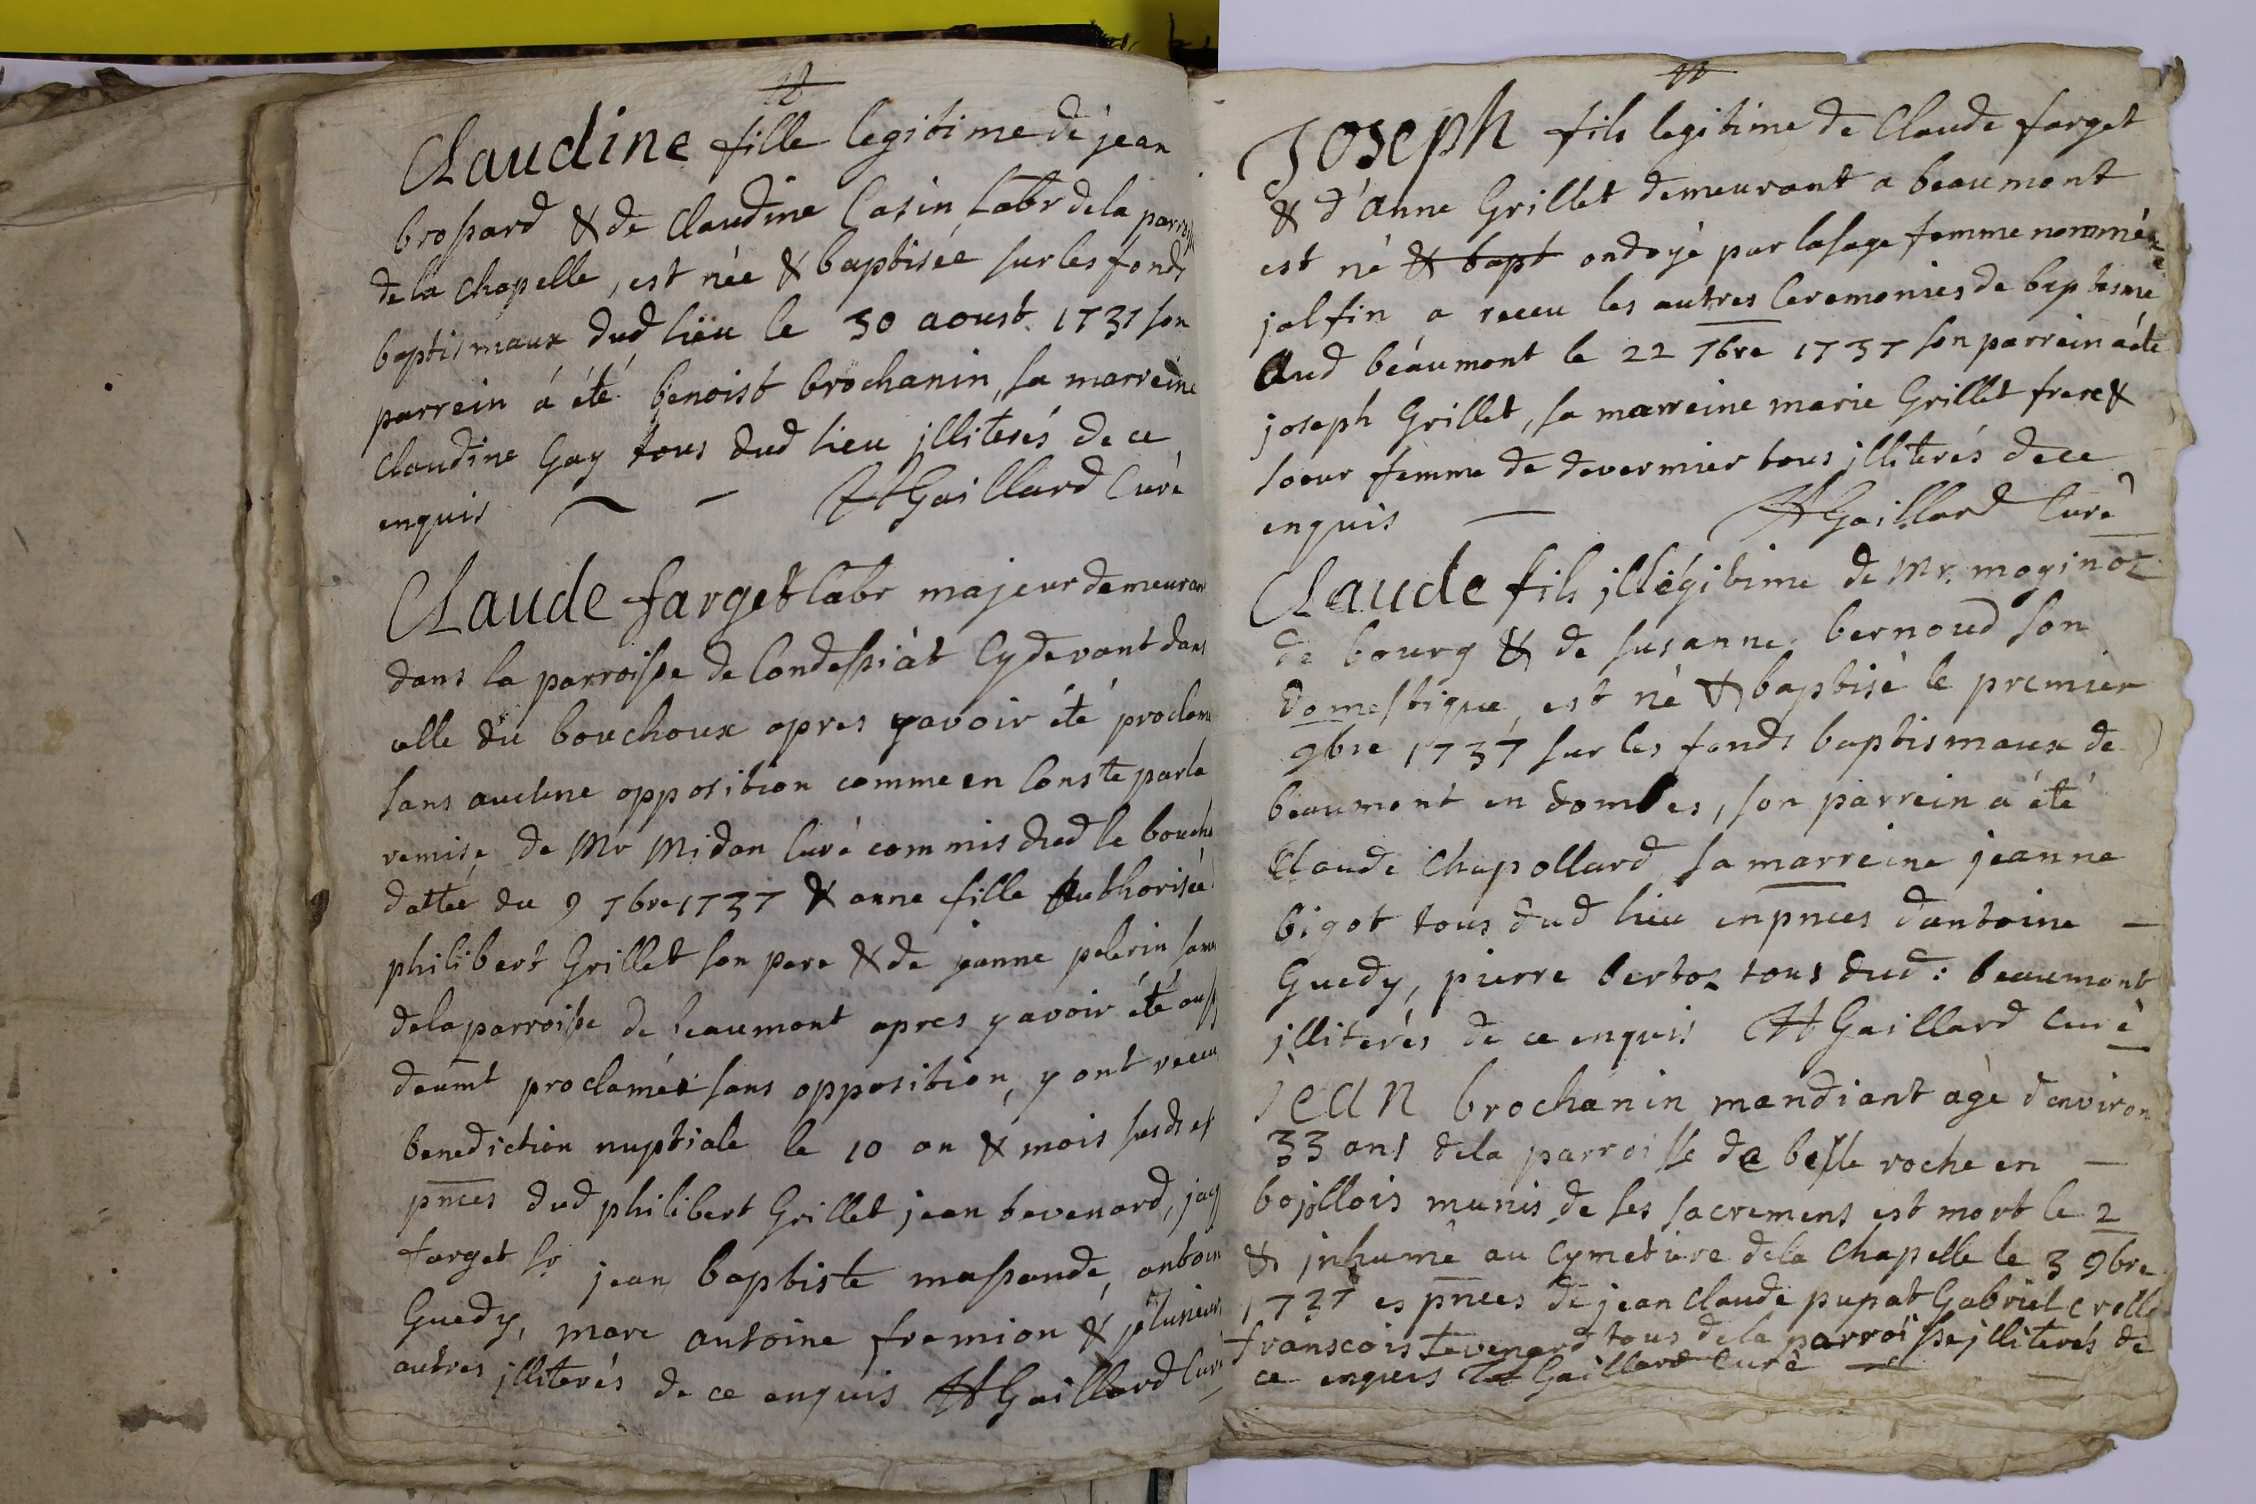 Claudine fille legitime de jean
brossard & de Claudine Casin Labr de la parroisse
de la chapelle, est née & baptisée sur les fonds
baptismaux dud lieu le 30 aoust 1737 son
parrein á été benoist brochanin, sa marreine
claudine Gay tous dud lieu jlliterés de ce
enquis HGaillard Curé
Claude farget labr majeur demeurant
dans la parroisse de Condessiàt Cydevant dans
celle du bouchoux apres y avoir été proclamé
sans aucune opposition comme en Conste par la
remise de Mr Midan Curé commis dud le bouchoux
dattée du 9 7bre 1737 & anne fille Authorisée
philibert Grillet son pere & de jeanne pelerin
de la parroisse de beaumont apres y avoir été aussy
deumt proclamée sans opposition, y ont receu
benediction nuptiale le 10 an & mois susds es
pnces dud philibert Grillet jean tevenard, jacq
farget Sr jean baptiste massande, antoine
Guedy, marc antoine fremion & plusieurs
autres jlliterés de ce enquis HGaillard Curé
Joseph fils legitime de Claude farget
& d'Anne Grillet demeurant a beaumont
est né & bapt ondoyé par la sage femme nommée
jalfin a receu les autres Ceremonies de baptesme
Aud beaumont le 22 7bre 1737 son parrein a été
joseph Grillet, sa marreine marie Grillet frere &
soeur femme de devermier tous jlliterés de ce
enquis HGaillard Curé
Claude fils jllégitime de Mr. moginot
de bourg & de susanne bernoud son
domestique, est né & baptisé le premier
9bre 1737 sur les fonds baptismaux de
beaumont en dombes, son parrein a été
Claude Chapollard sa marreine jeanne
bigot tous dud lieu en pnces d'antoine
Guedy, pierre bertoz tous dud: beaumont
jlliterés de ce enquis HGaillard Curé
jean brochanin mandiant agé d'environ
33 ans de la parroisse de belle roche en
bojollois munis de ses sacremens est mort le 2
& jnhumé au Cymetiere de la Chapelle le 3 9bre
1737 es pnces de jean Claude pupat Gabriel
franscois tevenard tous de la parroisse jlliterés de
ce enquis HGaillard Curé